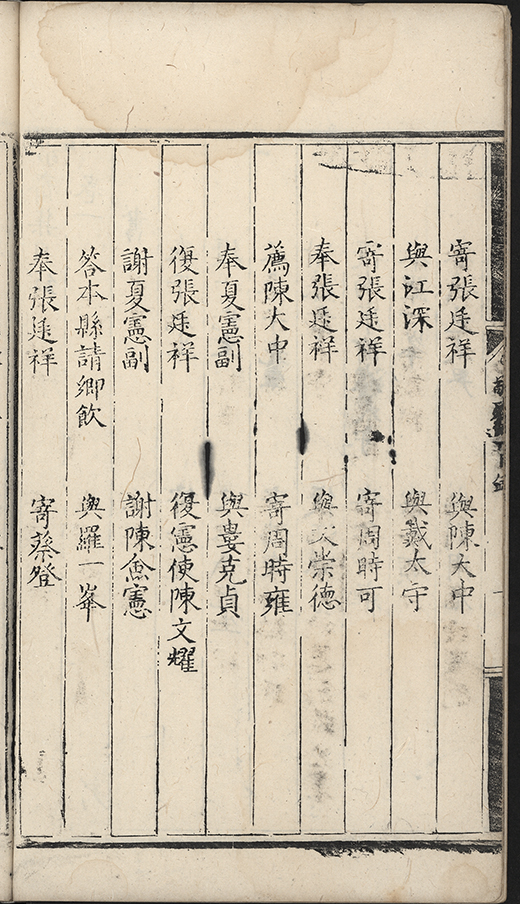 寄張廷祥 與陳大中
與江深 與戴太守
寄張廷祥 寄周時可
奉張廷祥 與 崇德
薦陳大中 寄周時雍
奉夏憲副 與婁克貞
復張廷祥 復憲使陳文耀
謝夏憲副 謝陳僉憲
答本縣請鄉飲 與羅一峯
奉張廷祥 寄蔡登